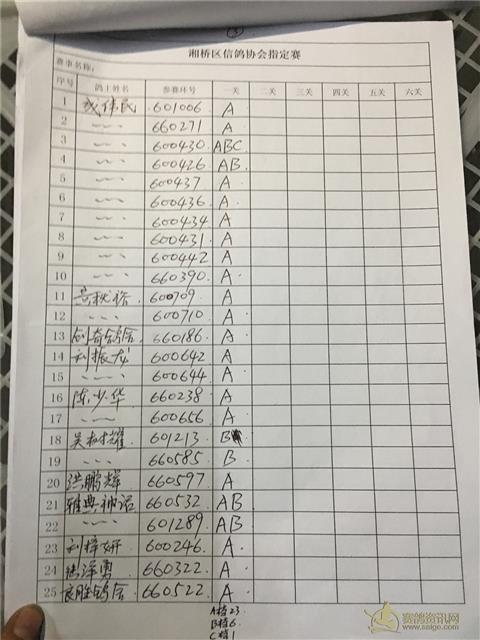 ③
湘桥区信鸽协会指定赛
赛事名称:
序号 鸽主姓名 参赛环号 一关 二关 三关 四关 五关 六关
1 伟民 601006 A
2 〃 660271 A
3 〃 600430 ABC
4 〃 600426 AB
5 〃 600437 A
6 〃 600436 A
7 〃 600434 A
8 〃 600431 A
9 〃 600442 A
10 〃 660390 A
11 600709 A
12 〃 600710 A
13 剑奇鸽舍 660186 A
14 刘振龙 600642 A
15 〃 600644 A
16 陈少华 660238 A
17 〃 600656 A
18 吴树耀 601213 B
19 〃 660585 B
20 洪鹏辉 660597 A
21 雅典神话 660532 AB
22 〃 601289 AB
23 刘梓妍 600246 A
24 泽勇 660322 A
25 良胜鸽舍 660522 A
A档23
B档6
C档1
赛鸽资讯网
www.saige.com